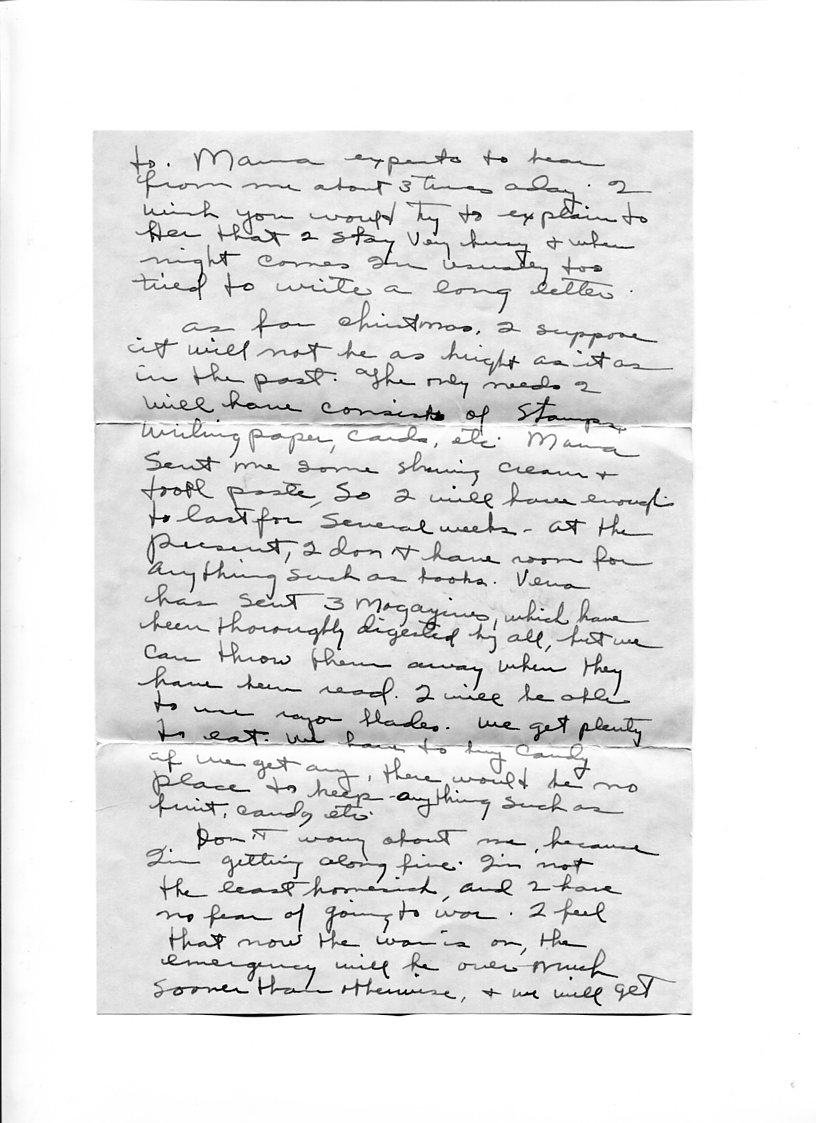 to. Mama expects to hear
from me about 3 times a day. I
wish you would try to explain to
Her that I stay very busy & when
night comes I'm usually too
tired to write a long letter.
As for Christmas, I suppose
it will not be as bright as it as
in the past. The only needs I
will have consists of Stamps,
writing paper, cards, etc. Mama
Sent me some shaving cream &
tooth paste, So I will have enough
to last for Several weeks - At the
present, I don't have room for
anything such as books. Vena
has sent 3 Magazines, which have
been thoroughly digested by all, but we
can throw them away when they
have been read. I will be able
to use razor blades. We get plenty
to eat. We have to buy candy
if we get any, there would be no
place to keep anything such as
fruit, candy, etc.
Don't worry about me, because
I'm getting along fine. I'm not
the least homesick, and I have
no fear of going to war. I feel
that now the war is on, the
emergency will be over much
sooner than otherwise, & we will get